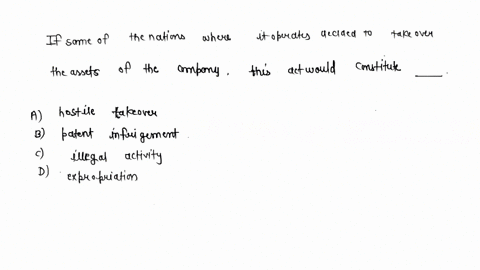 If some of the nations where it operates decided to takeover
the assets of the company, this act would constitute ____.
A) hostile takeover
B) patent infrigement
C) illegal activity
D) expropriation